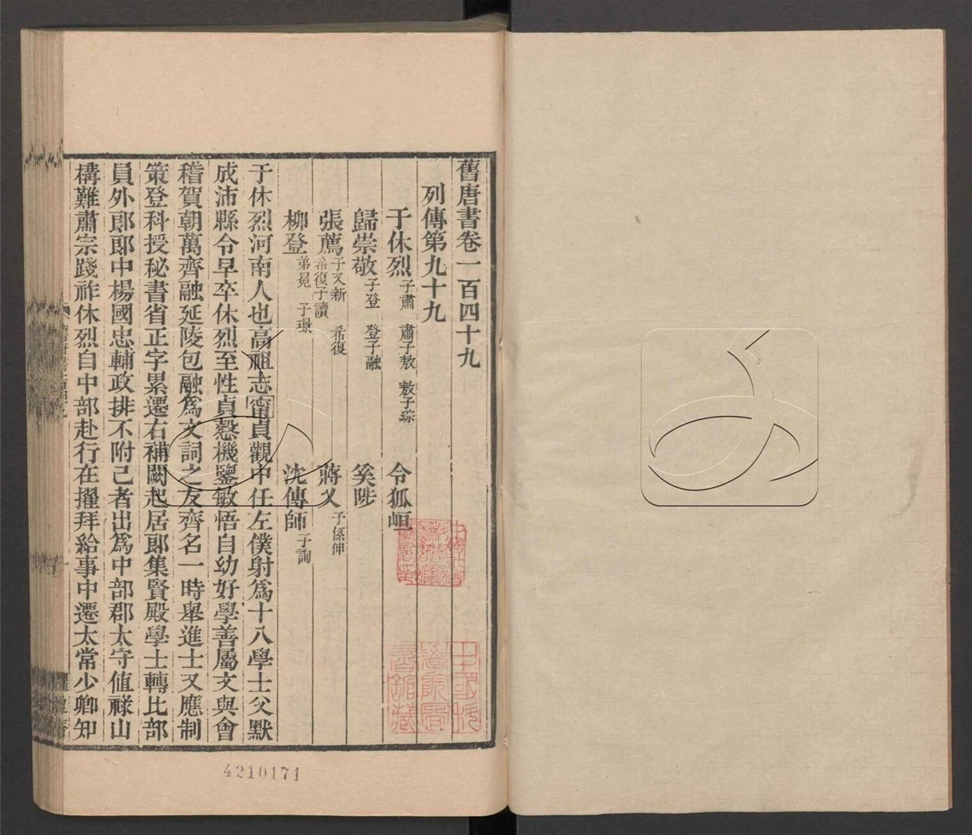 舊唐書卷一百四十九
列傳第九十九
于休烈 子肅 肅子敖 敖子琮 令狐峘
歸崇敬 子登 登子融 奚陟
張薦 子又新 希復 希復子讀 蔣乂 子係伸
柳登 弟冕 子璟 沈傳師 子詢
于休烈河南人也高祖志甯貞觀中任左僕射爲十八學士父默
成沛縣令早卒休烈至性貞慤機鑒敏悟自幼好學善屬文與會
稽賀朝萬齊融延陵包融爲文詞之友齊名一時舉進士又應制
策登科授秘書省正字累遷右補闕起居郎集賢殿學士轉比部
員外郎郎中楊國忠輔政排不附己者出爲中部郡太守值祿山
構難肅宗踐祚休烈自中部赴行在擢拜給事中遷太常少卿知
4210171